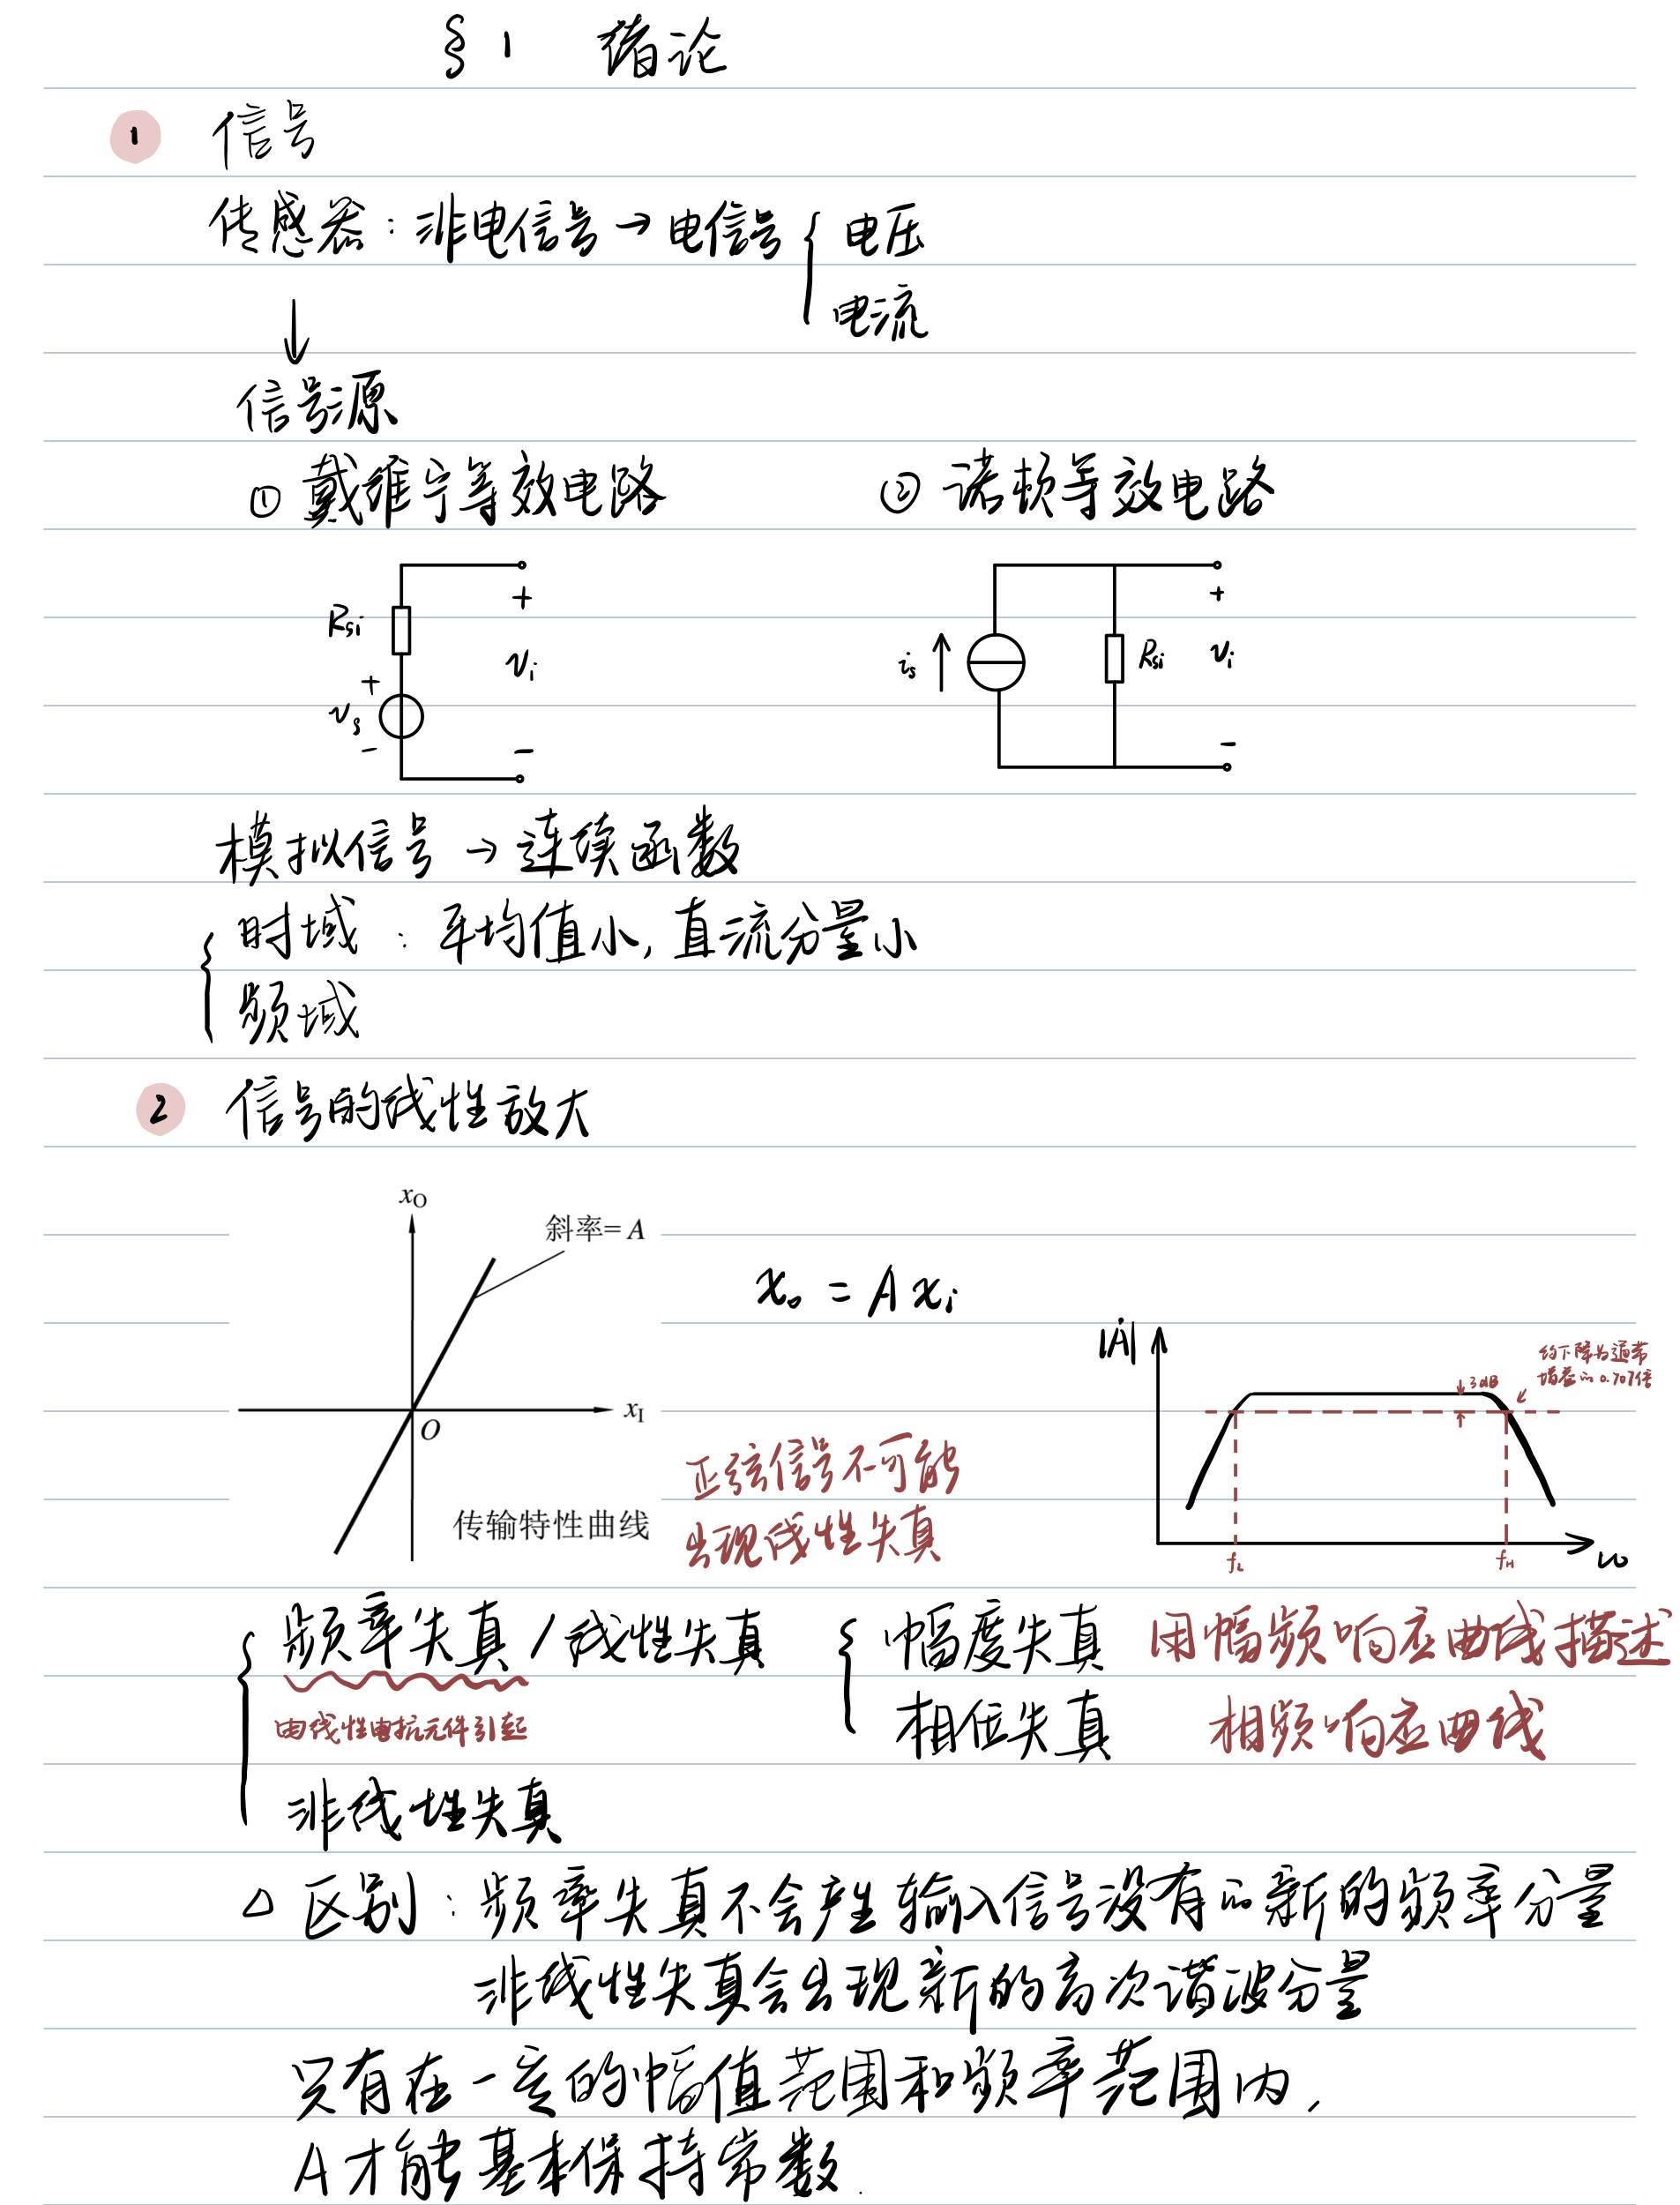 § 1 绪论
1 信号
传感器：非电信号→电信号 { 电压
电流
↓
信号源
① 戴维宁等效电路 ② 诺顿等效电路
Rsi + vi
+ vs -
-
is Rsi + vi -
模拟信号→连续函数
时域：平均值小，直流分量小
频域
2 信号的线性放大
xO
斜率=A
xI
O
传输特性曲线
xo = A xi
|Ȧ|
约下降为通带
增益的0.707倍
3dB
fL fH ω
正弦信号不可能
出现线性失真
频率失真/线性失真 { 幅度失真 用幅频响应曲线描述
由线性电抗元件引起 相位失真 相频响应曲线
非线性失真
△ 区别：频率失真不会产生输入信号没有的新的频率分量
非线性失真会出现新的高次谐波分量
只有在一定的幅值范围和频率范围内，
A才能基本保持常数.